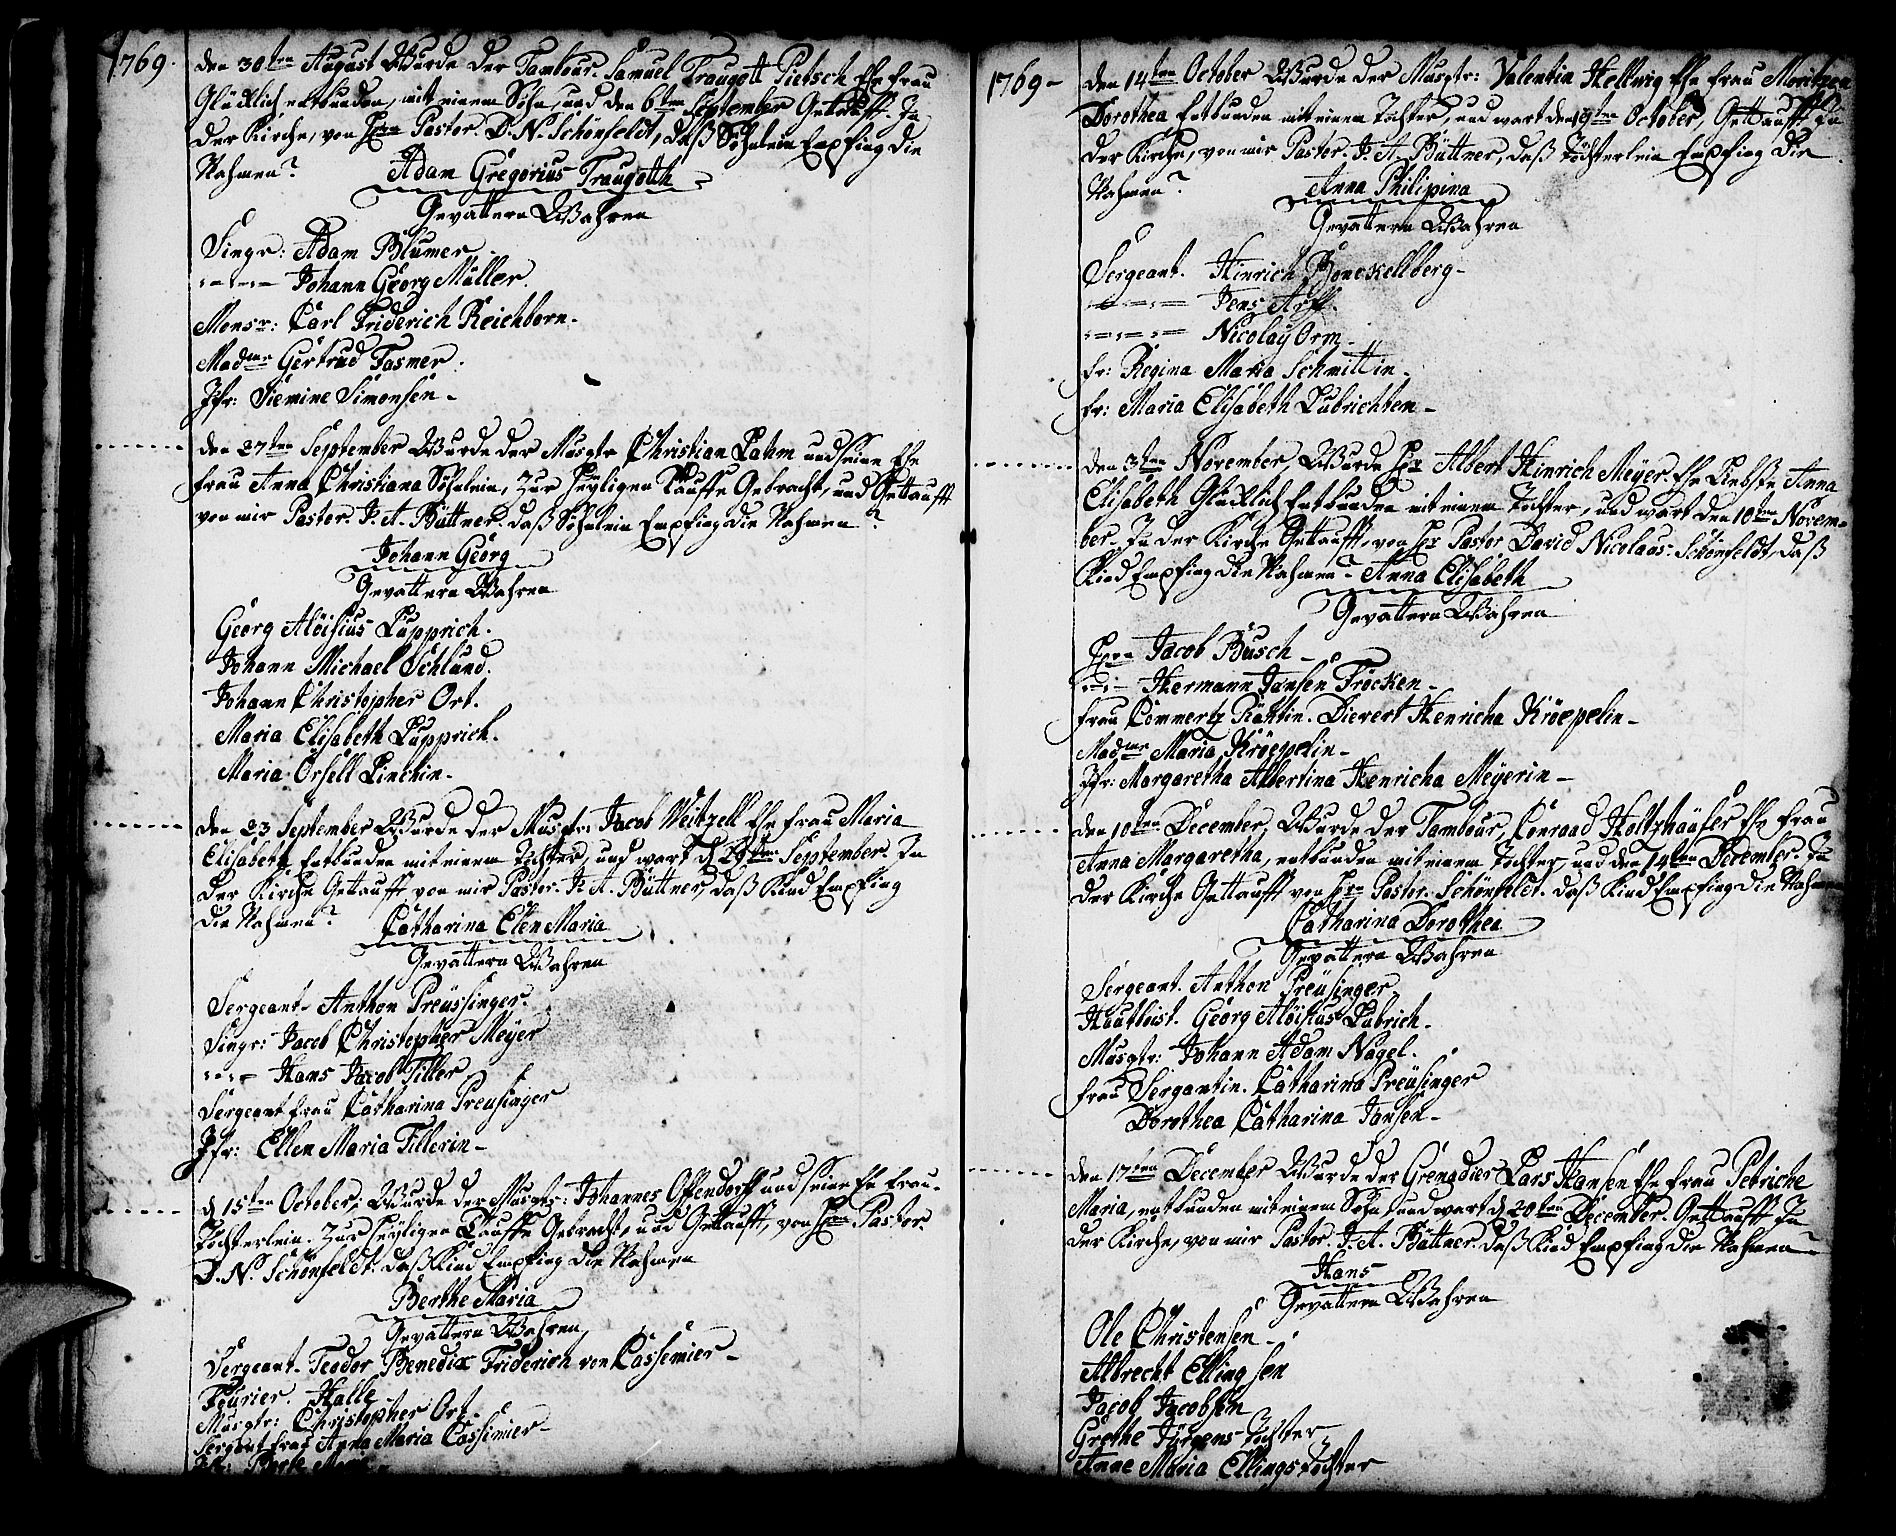 1769.
den 30ten August Wurde der Tambour. Samuel Traugott Pietsch Ehe frau
Glücklich entbunden, mit einem Sohn, und den 6ten September Getaufft. In
der Kirche, von Hrn Pastor. D. N. Schönfeldt, daß Söhnlein Empfing die
Nahmen? Adam Gregorius Traugoth
Gevattern Wahren
Singr: Adam Blumer.
Johann Georg Müller.
Monsr: Carl Friderich Reichborn.
Madme Gertrud Fasmer.
Jfr: Siemine Simonsen.
den 27ten September Wurde der Musqtr Christian Lahm und seine Ehe
frau Anna Christiana Söhnlein, Zur Heyligen Tauffe Gebracht, und Gettaufft
von mir Pastor. J. A. Büttner. daß Söhnlein Empfing die Nahmen?
Johann Georg
Gevattern Wahren
Georg Aloisius Lupprich.
Johann Michael Schlund.
Johann Christopher Ort.
Maria Elisabeth Lupprich.
Maria Orsell Linckin.
den 23 September Wurde der Musqtr: Jacob Weitzell Ehe frau Maria
Elisabeth Entbunden mit einem Tochter, und wart d 29ten September. In
der Kirche Getaufft von mir Pastor. J. A. Büttner, daß Kind Empfing
die Nahmen? Catharina Elen Maria
Gevattern Wahren
Sergeant. Anthon Preüssinger.
Singr: Jacob Christopher Meyer
Hans Jacob Tiller
Sergeant frau Catharina Preusinger
Jfr: Ellen Maria Tillerin
d 15ten October, Wurde der Musqtr: Johannes Offendorff und seine Ehe frau.
Töchterlein. Zur Heyligen Tauffe Gebracht, und Gettaufft, von Hrn Pastor
D. N. Schönfeldt. daß Kind Empfing die Nahmen
Berthe Maria
Gevattern Wahren
Sergeant. Teodor Benedix Friderich von Cassemier
Fourier. Halle
Musqtr: Christopher Ort.
Sergant frau Anna Maria Cassimier
1769
den 14ten October Wurde der Musqtr: Valentin Hellwig Ehe frau
Dorothea Entbunden mit einem Tochter, und wart den 19ten October, Gettaufft In
der Kirche, von mir Pastor. J. A. Büttner, daß Töchterlein Empfing die
Nahmen? Anna Philipina
Gevattern Wahren
Sergeant. Hinrich Bonckellberg
Jens
Nicolay Orm.
fr: Regina Maria Schmittin.
fr: Maria Elisabeth Lubrichten
den 3ten November, Wurde Hr Albert Hinrich Meyer. Ehe Liebste Anna
Elisabeth Glücklich Entbunden mit einem Tochter, und wart den 10ten Novem-
ber. In der Kirche Getaufft, von Hr Pastor David Nicolaus. Schönfeldt, daß
Kind Empfing die Nahmen? Anna Elisabeth
Gevattern Wahren
Hrn Jacob Busch
Hermann Jansen Frocken
frau Commertz Räthin. Dievert Henricha Kröepelin
Madme Maria Kröepelin
Jfr: Margaretha Albertina Henricha Meyerin
den 10ten December, Wurde der Tambour, Conraad Holtzhäuser Ehe frau
Anna Margaretha, entbunden mit einem Tochter, und den 14ten December. In
der Kirche Gettaufft von Hrn Pastor. Schönfeldt. daß Kind Empfing die Nahmen
Catharina Dorothea
Gevattern Wahren
Sergeant. Anthon Preusinger
Hautboist. Georg Aloisius Lubrich.
Musqtr: Johann Adam Nagel.
frau Sergantin. Catharina Preüsinger
Dorothea Catharina Jansen
den 17ten December Wurde der Grenadier Lars Hansen Ehe frau Petriche
Maria, entbunden mit einem Sohn, und wart d 20ten December. Gettaufft In
der Kirche, von mir Pastor. J. A. Büttner. daß Kind Empfing die Nahmen
Hans
Gevattern Wahren
Ole Christensen
Albrecht Ellingsen
Jacob Jacobsen
Grethe Jürgens Tochter
Anne Maria Ellings Tochter